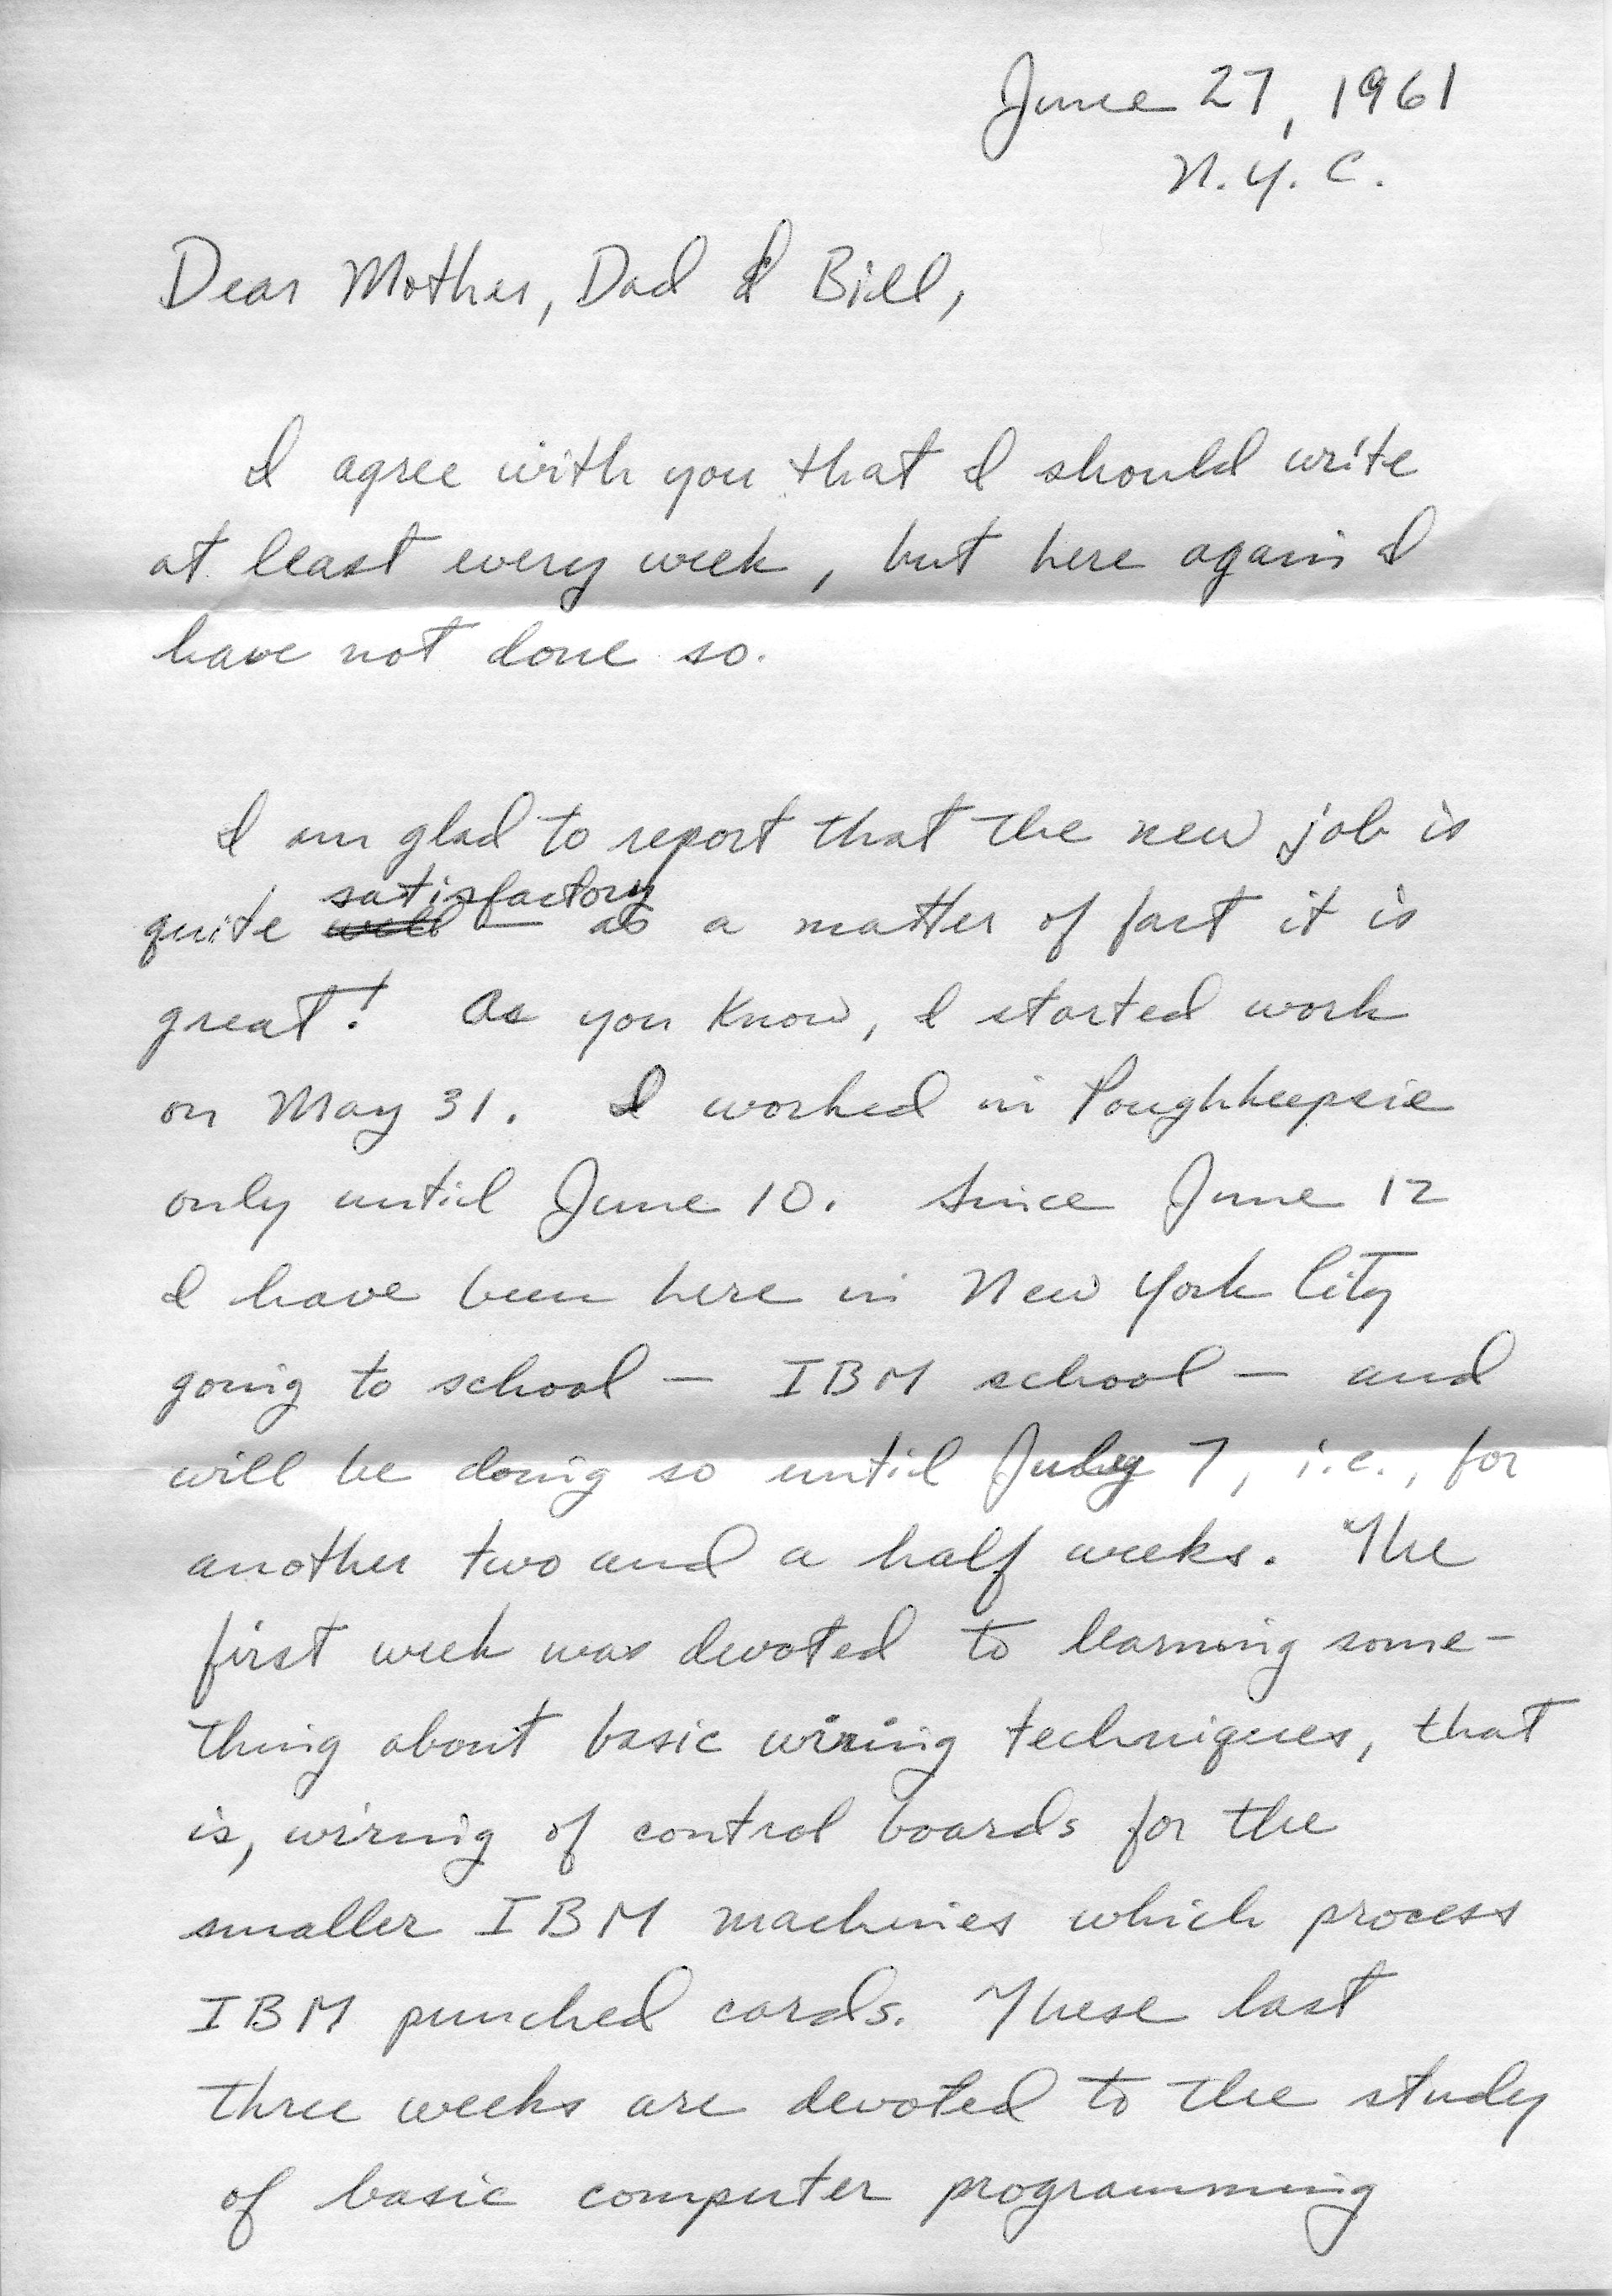 June 27, 1961
N.Y.C.
Dear Mother, Dad & Bill,
I agree with you that I should write
at least every week, but here again I
have not done so.
I am glad to report that the new job is
satisfactory
quite well — as a matter of fact it is
great! As you know, I started work
on May 31. I worked in Poughkeepsie
only until June 10. Since June 12
I have been here in New York City
going to school — IBM school — and
will be doing so until July 7, i.e., for
another two and a half weeks. The
first week was devoted to learning some-
thing about basic wiring techniques, that
is, wiring of control boards for the
smaller IBM machines which process
IBM punched cards. These last
three weeks are devoted to the study
of basic computer programming